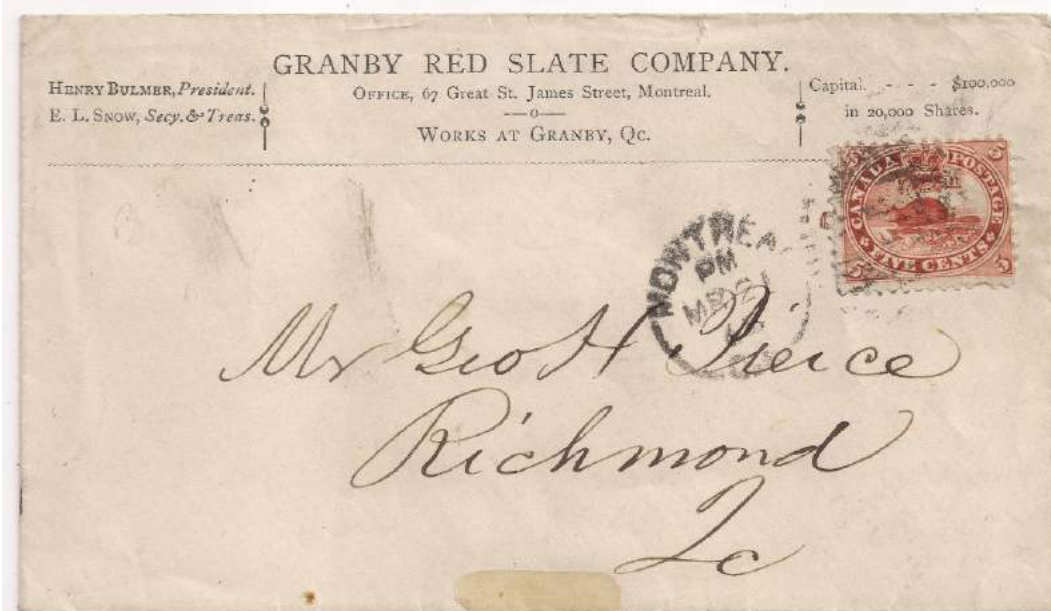 GRANBY RED SLATE COMPANY.
HENRY BULMER, President.
E. L. SNOW, Secy. & Treas.
OFFICE, 67 Great St. James Street, Montreal.
—o—
WORKS AT GRANBY, QC.
Capital. - - - $100.000
in 20,000 Shares.
5 CANADA POSTAGE 5
5 FIVE CENTS 5
MONTREA
PM
Mr Geo H Pierce
Richmond
Qc